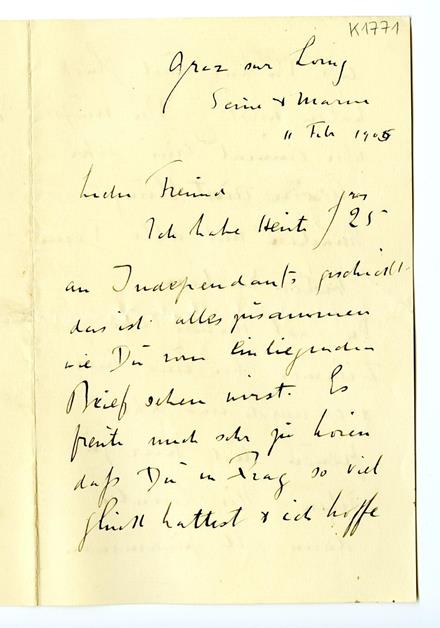 K1771
Grez sur Loing
Seine & Marne
11 Feb 1905
Lieber Freund
Ich habe Heute frs 25
an Independants geschickt.
das ist alles zusammen
wie Du vom Einliegenden
Brief sehen wirst. Es
freute mich sehr zu hören
daß Du in Prag so viel
glück hattest & ich hoffe